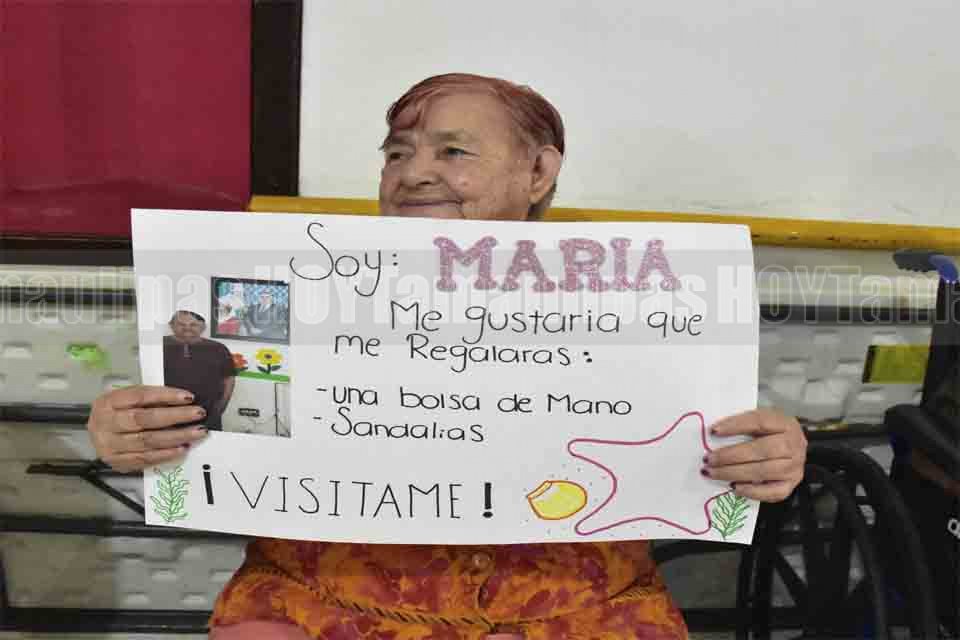 Soy: MARIA
Me gustaria que
me Regalaras:
-una bolsa de Mano
-Sandalias
¡VISITAME!
HOYTamaulipas HOYTam